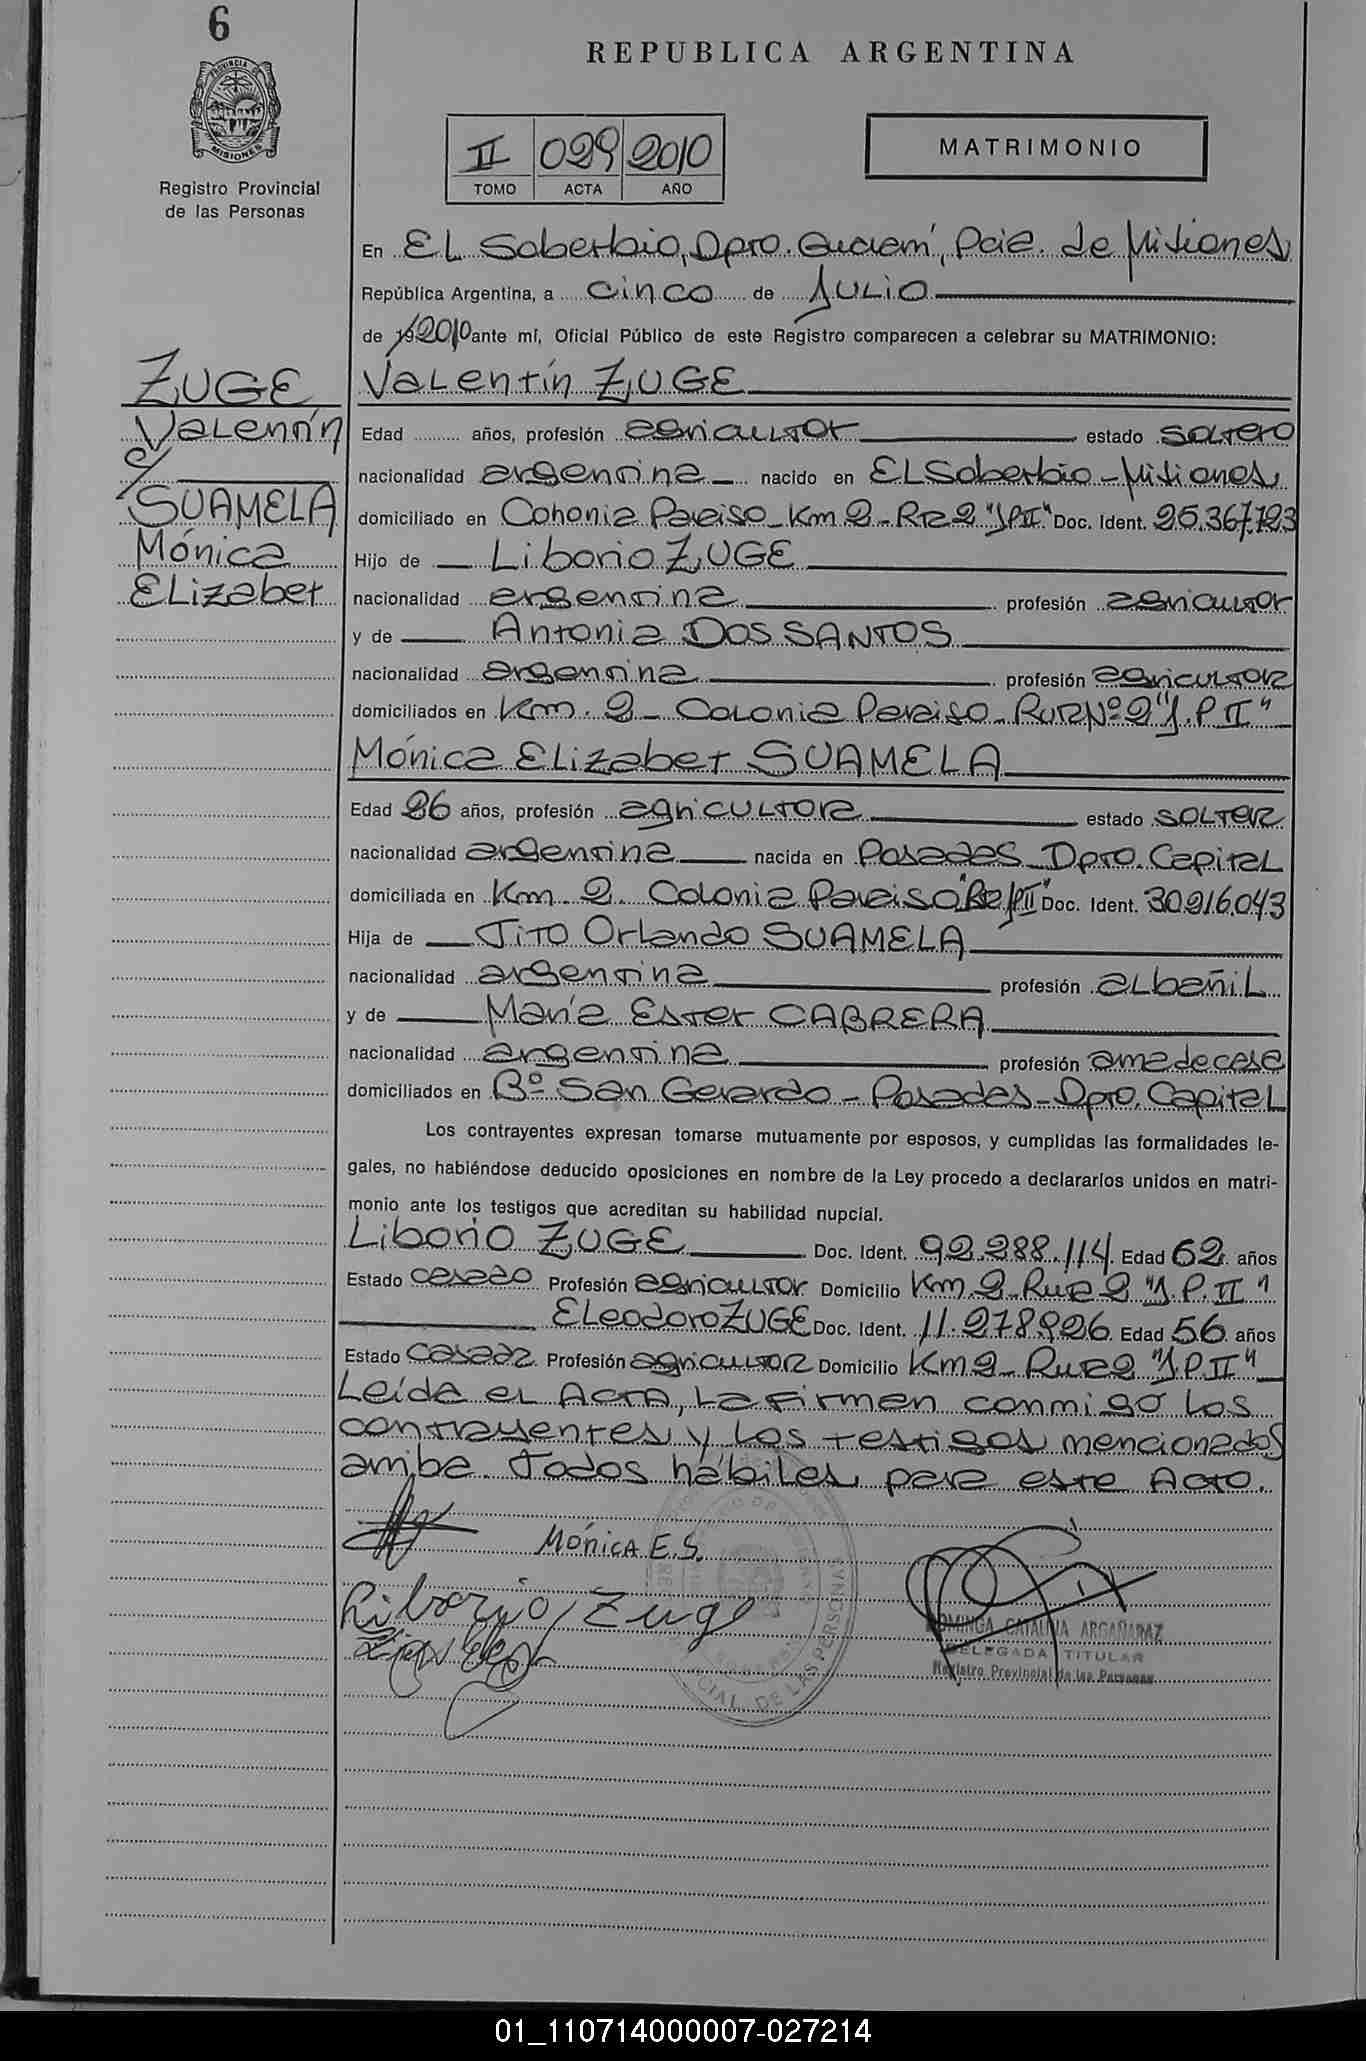 6
REPUBLICA ARGENTINA
PROVINCIA DE
MISIONES
Registro Provincial
de las Personas
II 029 2010
TOMO ACTA AÑO
MATRIMONIO
En El Soberbio, Dpto. Guaraní, Pcia. de Misiones
República Argentina, a cinco de Julio
de 2010 ante mí, Oficial Público de este Registro comparecen a celebrar su MATRIMONIO:
ZUGE
Valentín
c/
SUAMELA
Mónica
Elizabet
Valentín ZUGE
Edad años, profesión agricultor estado soltero
nacionalidad argentina nacido en El Soberbio - Misiones
domiciliado en Colonia Paraiso - Km 2 - "J P II" Doc. Ident. 25.367.723
Hijo de Liborio ZUGE
nacionalidad argentina profesión agricultor
y de Antonia DOS SANTOS
nacionalidad argentina profesión agricultora
domiciliados en Km. 2 - Colonia Paraiso - Ruta Nº 2 "J. P II"
Mónica Elizabet SUAMELA
Edad 26 años, profesión agricultora estado soltera
nacionalidad argentina nacida en Posadas Dpto. Capital
domiciliada en Km. 2. Colonia Paraiso Doc. Ident. 30.916.043
Hija de Tito Orlando SUAMELA
nacionalidad argentina profesión albañil
y de María Ester CABRERA
nacionalidad argentina profesión ama de casa
domiciliados en Bº San Gerardo - Posadas - Dpto. Capital
Los contrayentes expresan tomarse mutuamente por esposos, y cumplidas las formalidades le-
gales, no habiéndose deducido oposiciones en nombre de la Ley procedo a declararlos unidos en matri-
monio ante los testigos que acreditan su habilidad nupcial.
Liborio ZUGE Doc. Ident. 92.288.114 Edad 62 años
Estado casado Profesión agricultor Domicilio Km. 2 - Ruta 2 "J. P. II"
Eleodoro ZUGE Doc. Ident. 11.278.926 Edad 56 años
Estado casada Profesión agricultora Domicilio Km 2 - Ruta 2 "J. P. II"
Leída el Acta, la firman conmigo los
contrayentes y los testigos mencionados
arriba. Todos hábiles para este Acto.
Mónica E.S.
Liborio Zuge
DOMINGA CATALINA ARGAÑARAZ
DELEGADA TITULAR
Registro Provincial de las Personas
01_110714000007-027214